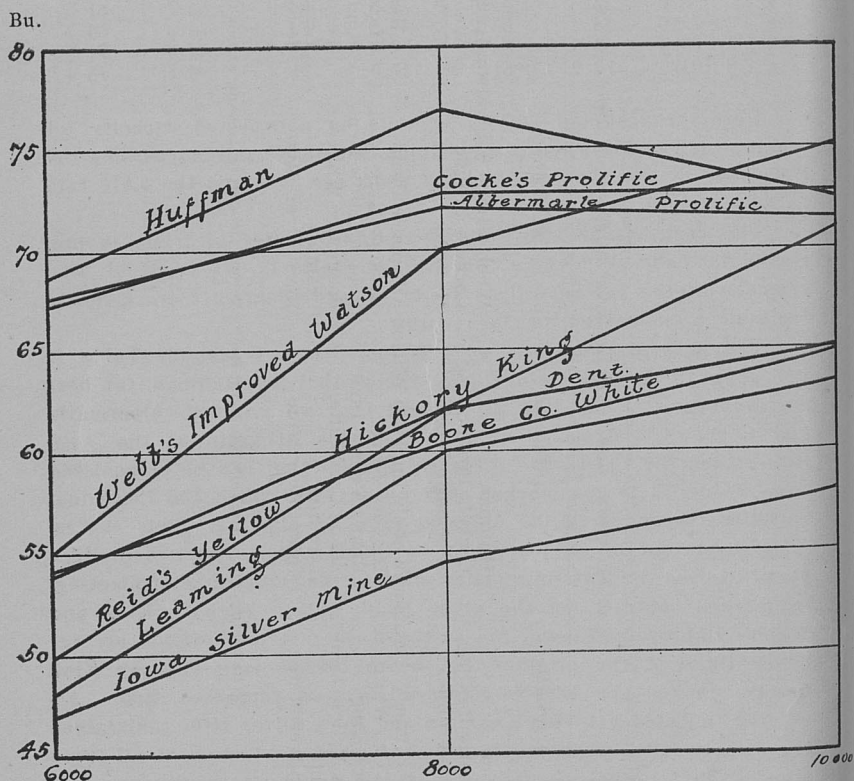 Bu.
80
75
Huffman
Cocke's Prolific
Albermarle Prolific
70
Webb's Improved Watson
65
Hickory King
Dent.
Boone Co. White
60
55
Reid's Yellow
Leaming
50
Iowa Silver Mine
45
6000 8000 10000